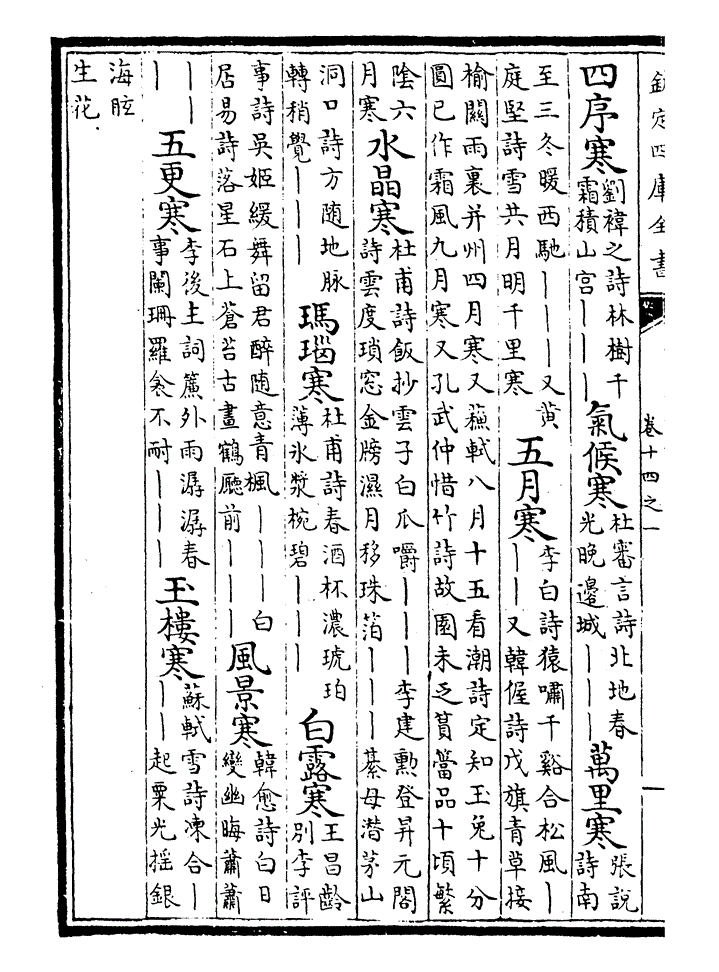 欽定四庫全書
卷十四之一
四序寒
劉禕之詩林樹千
霜積山宮｜｜｜
氣候寒
杜審言詩北地春
光晚邊城｜｜｜
萬里寒
張說
詩南
至三冬暖西馳｜｜｜又黃
庭堅詩雪共月明千里寒
五月寒
李白詩猿嘯千谿合松風｜
｜｜又韓偓詩戍旗青草接
榆關雨裏并州四月寒又蘇軾八月十五看潮詩定知玉兔十分
圓已作霜風九月寒又孔武仲惜竹詩故園未乏篔簹品十頃繁
陰六
月寒
水晶寒
杜甫詩飯抄雲子白瓜嚼｜｜｜李建勲登昇元閣
詩雲度瑣窓金牓濕月移珠箔｜｜｜綦母潛茅山
洞口詩方随地脉
轉稍覺｜｜｜
瑪瑙寒
杜甫詩春酒杯濃琥珀
薄氷漿椀碧｜｜｜
白露寒
王昌齡
別李評
事詩吳姬緩舞留君醉随意青楓｜｜｜白
居易詩落星石上蒼苔古畫鶴廳前｜｜｜
風景寒
韓愈詩白日
變幽晦蕭蕭
｜｜
｜
五更寒
李後主詞簾外雨潺潺春
事闌珊羅衾不耐｜｜｜
玉樓寒
蘇軾雪詩凍合｜
｜｜起粟光揺銀
海眩
生花